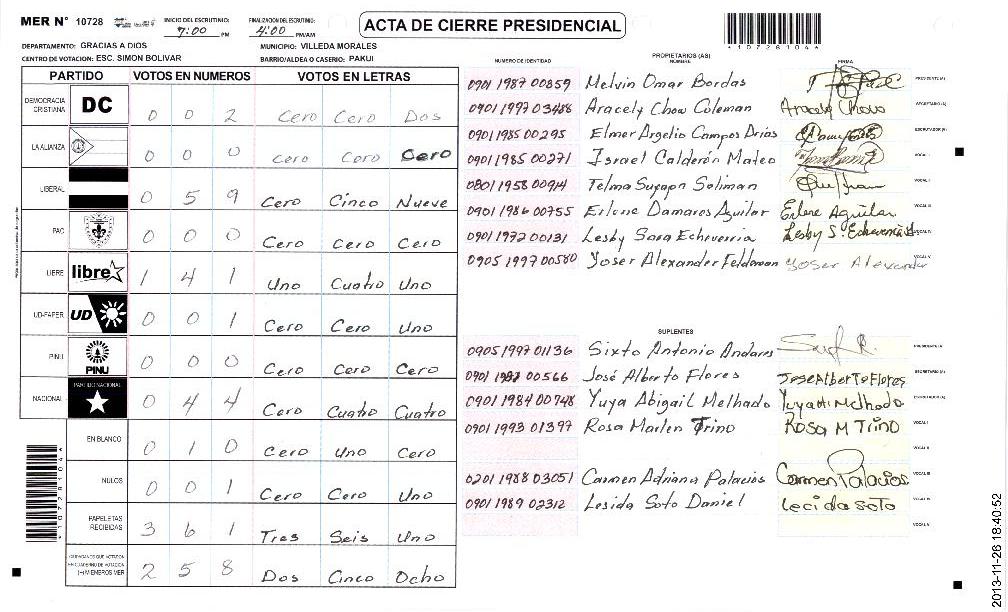 MER N° 10728
INICIO DEL ESCRUTINIO: 7:00 PM
FINALIZACION DEL ESCRUTINIO: 4:00 PM/AM
ACTA DE CIERRE PRESIDENCIAL
*10728104*
DEPARTAMENTO: GRACIAS A DIOS
MUNICIPIO: VILLEDA MORALES
CENTRO DE VOTACION: ESC. SIMON BOLIVAR
BARRIO/ALDEA O CASERIO: PAKUI
PARTIDO VOTOS EN NUMEROS VOTOS EN LETRAS
DEMOCRACIA CRISTIANA DC 0 0 2 Cero Cero Dos
LA ALIANZA 0 0 0 Cero Cero Cero
LIBERAL 0 5 9 Cero Cinco Nueve
PAC 0 0 0 Cero Cero Cero
LIBRE libre 1 4 1 Uno Cuatro Uno
UD-FAPER UD 0 0 1 Cero Cero Uno
PINU PINU 0 0 0 Cero Cero Cero
NACIONAL PARTIDO NACIONAL 0 4 4 Cero Cuatro Cuatro
EN BLANCO 0 1 0 Cero Uno Cero
NULOS 0 0 1 Cero Cero Uno
PAPELETAS RECIBIDAS 3 6 1 Tres Seis Uno
CIUDADANOS QUE VOTARON EN CUADERNO DE VOTACION (+) MIEMBROS MER 2 5 8 Dos Cinco Ocho
*10728104*
PROPIETARIOS (AS)
NUMERO DE IDENTIDAD NOMBRE FIRMA
0901 1987 00859 Melvin Omar Bordas PRESIDENTE (A)
0901 1997 03488 Aracely Chow Coleman Aracely Chow SECRETARIO (A)
0901 1985 00295 Elmer Argelio Campos Arias ESCRUTADOR (A)
0901 1985 00271 Israel Calderón Mateo VOCAL I
0801 1958 00914 Telma Suyapa Soliman VOCAL II
0901 1986 00755 Erlene Damaros Aguilar Erlene Aguilar VOCAL III
0901 1972 00131 Lesby Sara Echeverria Lesby S. Echeverria VOCAL IV
0905 1997 00580 Yoser Alexander Feldoman Yoser Alexander VOCAL V
SUPLENTES
0905 1997 01136 Sixto Antonio Andares PRESIDENTE (A)
0901 1987 00566 José Alberto Flores Jose Alberto Flores SECRETARIO (A)
0901 1984 00748 Yuya Abigail Melhado Yuya A Melhado ESCRUTADOR (A)
0901 1993 01397 Rosa Marlen Trino Rosa M Trino VOCAL I
VOCAL II
0201 1988 03051 Carmen Adriana Palacios Carmen Palacios VOCAL III
0901 1989 02312 Lesida Soto Daniel Lecida Soto VOCAL IV
VOCAL V
2013-11-26 18:40:52